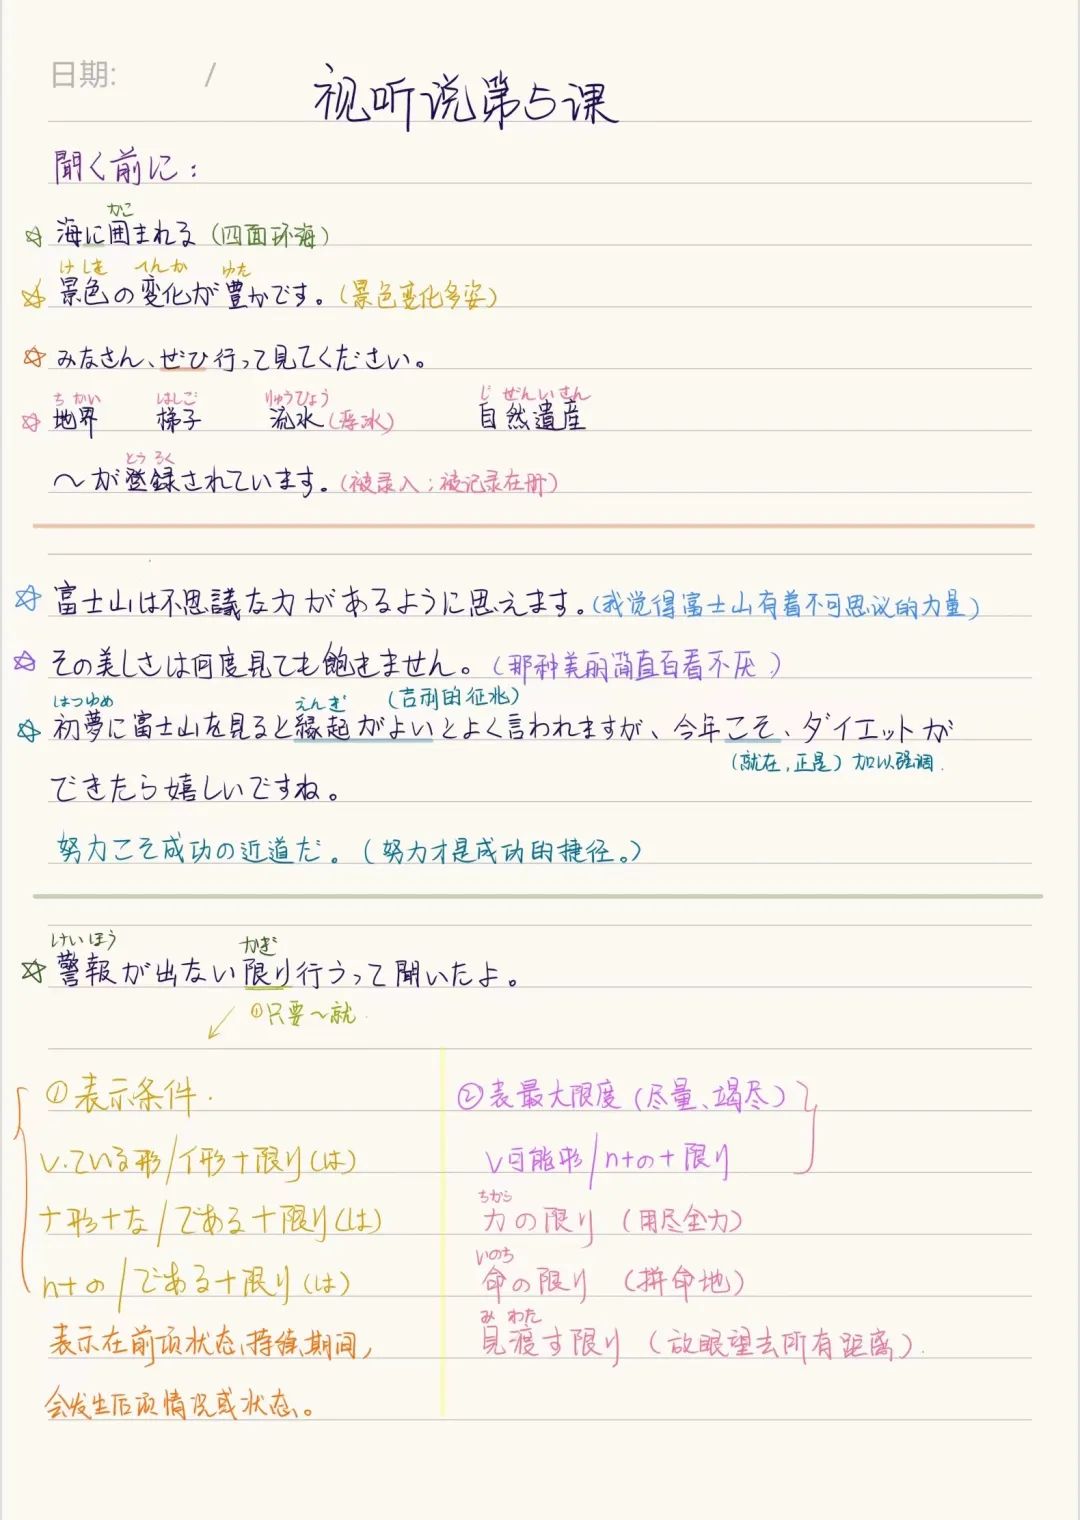 日期: /
视听说第5课
聞く前に：
かこ
☆ 海に囲まれる（四面环海）
けしき へんか ゆた
☆ 景色の変化が豊かです。（景色变化多姿）
☆ みなさん、ぜひ行って見てください。
ちかい はしご りゅうひょう じぜんいさん
☆ 地界 梯子 流氷（浮冰） 自然遺産
とうろく
〜が登録されています。（被录入；被记录在册）
☆ 富士山は不思議な力があるように思えます。（我觉得富士山有着不可思议的力量）
☆ その美しさは何度見ても飽きません。（那种美丽简直百看不厌）
はつゆめ えんぎ （吉利的征兆）
☆ 初夢に富士山を見ると縁起がよいとよく言われますが、今年こそ、ダイエットが
（就在，正是）加以强调.
できたら嬉しいですね。
努力こそ成功の近道だ。（努力才是成功的捷径。）
けいほう かぎ
☆ 警報が出ない限り行うって聞いたよ。
①只要〜就.
①表示条件.
v.ている形/イ形+限り(は)
ナ形+な/である+限り(は)
n+の/である+限り(は)
表示在前项状态、持续期间,
会发生后项情况或状态、。
②表最大限度（尽量、竭尽）
v可能形/n+の+限り
ちから
力の限り（用尽全力）
いのち
命の限り（拼命地）
みわた
見渡す限り（放眼望去所有距离）.